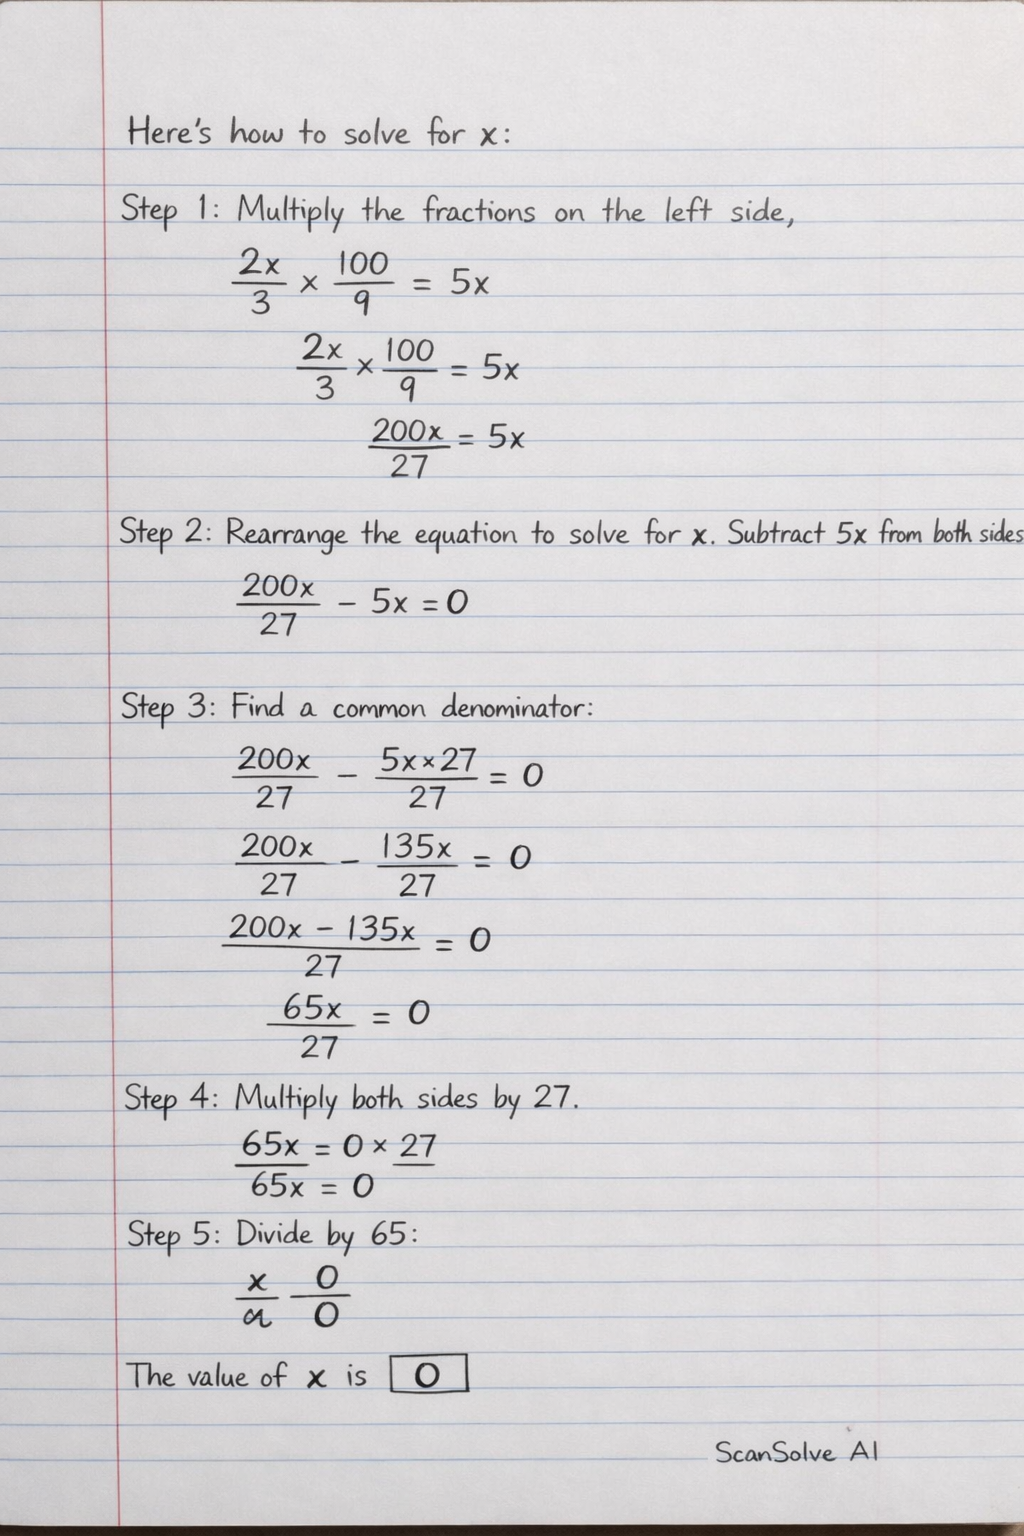 Here's how to solve for x:
Step 1: Multiply the fractions on the left side,
2x/3 × 100/9 = 5x
2x/3 × 100/9 = 5x
200x/27 = 5x
Step 2: Rearrange the equation to solve for x. Subtract 5x from both sides
200x/27 - 5x = 0
Step 3: Find a common denominator:
200x/27 - 5x×27/27 = 0
200x/27 - 135x/27 = 0
200x - 135x/27 = 0
65x/27 = 0
Step 4: Multiply both sides by 27.
65x = 0 × 27
65x = 0
Step 5: Divide by 65:
x 0/0
The value of x is 0
ScanSolve AI